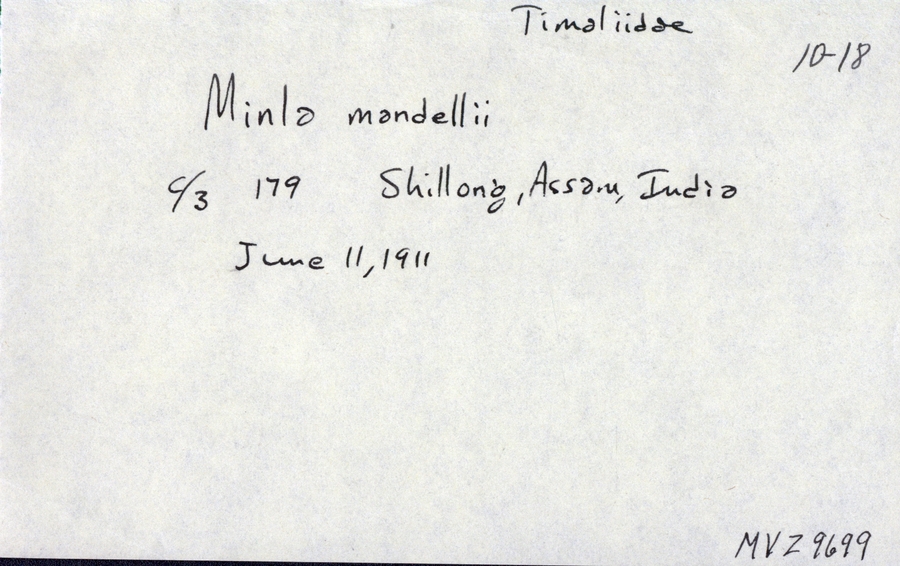 Timaliidae
10-18
Minla mandellii
c/3 179 Shillong, Assam, India
June 11, 1911
MVZ 9699